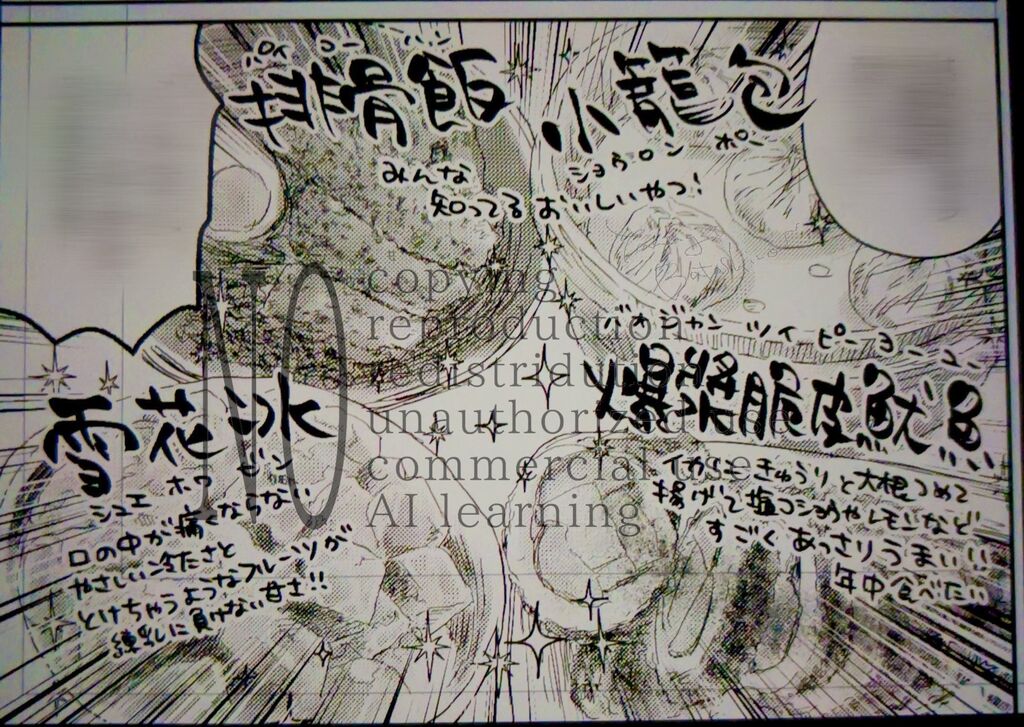 パイコーハン
排骨飯
小籠包
ショウロンポー
みんな
知ってるおいしいやつ!
バオジャンツイピーヨーユー
爆漿脆皮魷魚
イカにきゅうりと大根つめて
揚げて塩コショウやレモンなど
すごくあっさりうまい!!
年中食べたい
雪花冰
シュエホワビン
口の中が痛くならない
やさしい冷たさと
とけちゃうようなフルーツが
練乳に負けない甘さ!!
NO
copying
reproduction
redistribution
unauthorized use
commercial use
AI learning